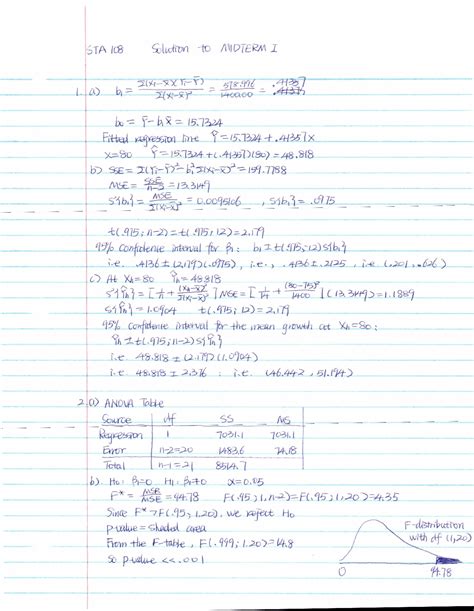 STA 108 Solution to MIDTERM I
1. a) b₁ = Σ(Xi-X̄)(Yi-Ȳ) / Σ(Xi-X̄)² = 578.996 / 1400.00 = .41357
b₀ = Ȳ - b₁X̄ = 15.7324
Fitted regression line Ŷ = 15.7324 + .41357X
X=80 Ŷ = 15.7324 + (.41357)(80) = 48.818
b) SSE = Σ(Yi-Ȳ)² - b₁² Σ(Xi-X̄)² = 159.7788
MSE = SSE / n-2 = 13.3149
s²{b₁} = MSE / Σ(Xi-X̄)² = 0.0095106 , s{b₁} = .0975
t(.975; n-2) = t(.975; 12) = 2.179
95% Confidence interval for β₁: b₁ ± t(.975, 12) s{b₁}
i.e. .4136 ± (2.179)(.0975), i.e., .4136 ± .2125 , i.e. (.201, .626)
c) At Xh=80 Ŷh = 48.818
s²{Ŷh} = [1/n + (Xh-X̄)² / Σ(Xi-X̄)²] MSE = [1/14 + (80-75)² / 1400] (13.3149) = 1.1889
s{Ŷh} = 1.0904 t(.975; 12) = 2.179
95% confidence interval for the mean growth at Xh=80:
Ŷh ± t(.975; n-2) s{Ŷh}
i.e. 48.818 ± (2.179)(1.0904)
i.e. 48.818 ± 2.376 : i.e. (46.442, 51.194)
2. a) ANOVA Table
Source df SS MS
Regression 1 7031.1 7031.1
Error n-2=20 1483.6 74.18
Total n-1=21 8514.7
b). H₀: β₁=0 H₁: β₁≠0 α=0.05
F* = MSR / MSE = 94.78 F(.95; 1, n-2) = F(.95; 1, 20) = 4.35
Since F* > F(.95; 1, 20), we reject H₀
p-value = shaded area
From the F-table, F(.999; 1, 20) = 14.8
so p-value < .001
F-distribution
with df (1,20)
0 94.78